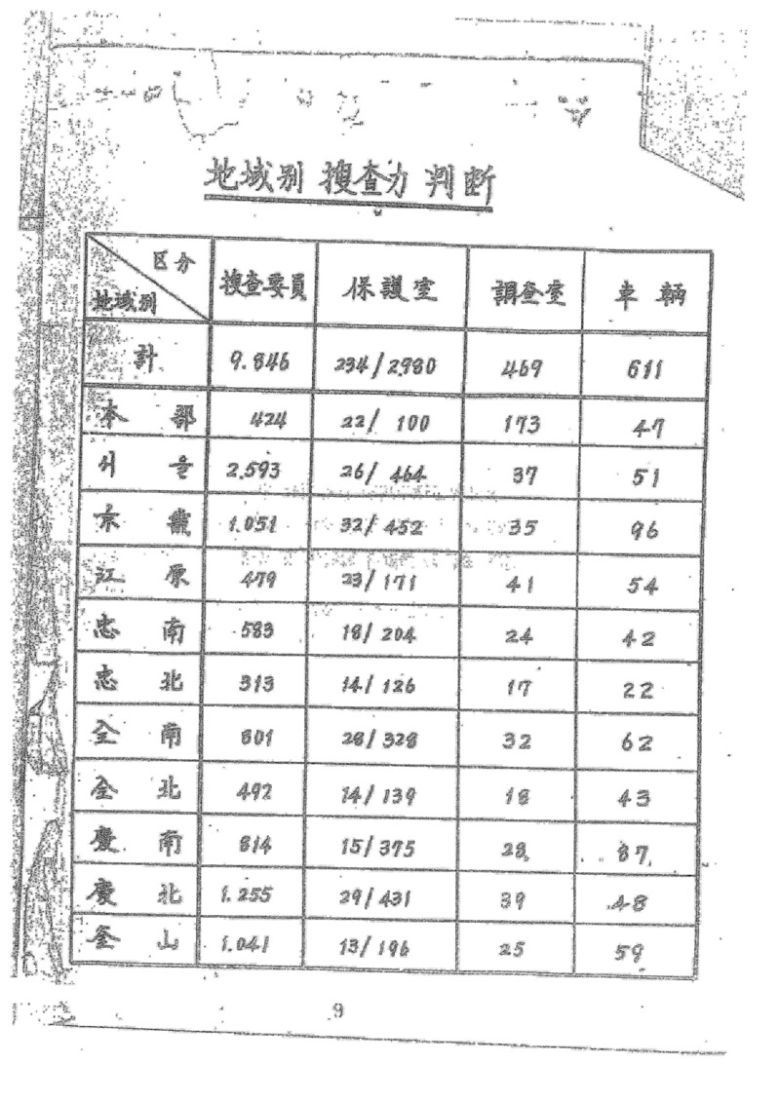 地域别 搜査力 判断
区分 搜查要員 保護室 調査室 車輌
地域別
計 9.846 234/2980 469 611
本部 424 22/ 100 173 47
서울 2.593 26/ 464 37 51
京畿 1.051 32/ 452 35 96
江原 479 23/171 41 54
忠南 583 18/ 204 24 42
忠北 313 14/ 126 17 22
全南 801 28/ 328 32 62
全北 492 14/ 139 18 43
慶南 814 15/375 28 87
慶北 1.255 29/431 39 48
釜山 1.041 13/196 25 59
9